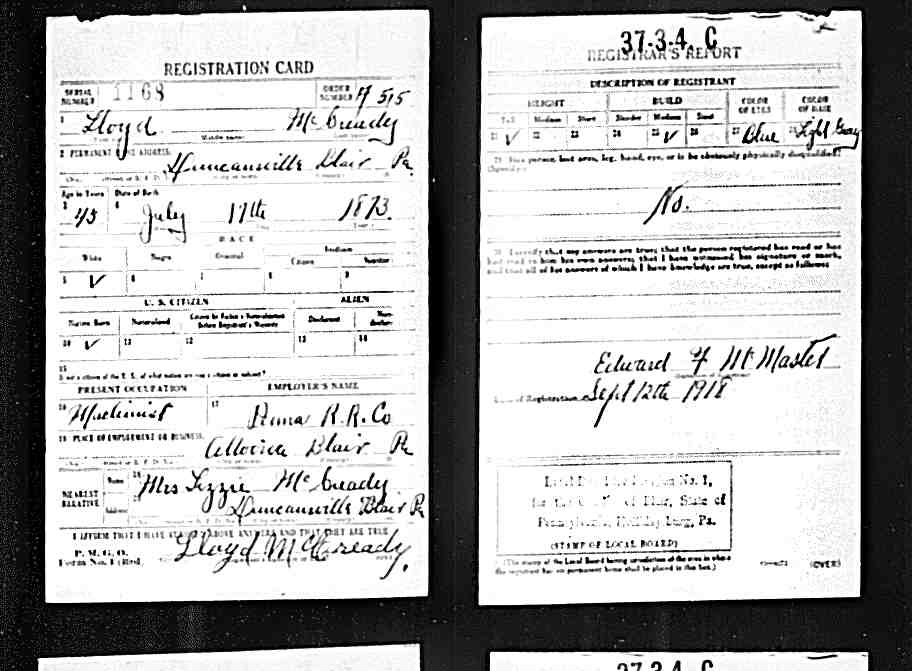 REGISTRATION CARD
SERIAL NUMBER 1168 ORDER NUMBER
1 Lloyd McCready
Middle name
2 PERMANENT HOME ADDRESS:
Duncansville Blair Pa
Age in Years Date of Birth
3 45 4 July 17th 1873
RACE
White Negro Oriental Indian
Citizen Noncitizen
5 ✓ 6 7 8 9
U. S. CITIZEN ALIEN
Native Born Naturalized Citizen by Father's Naturalization Before Registrant's Majority Declarant Non-declarant
10 ✓ 11 12 13 14
15
If not a citizen of the U. S., of what nation are you a citizen or subject?
PRESENT OCCUPATION EMPLOYER'S NAME
16 Machinist 17 Penna R.R. Co
18 PLACE OF EMPLOYMENT OR BUSINESS:
Altoona Blair Pa
NEAREST RELATIVE
Name 19 Mrs Lizzie McCready
Address 20 Duncansville Blair Pa
I AFFIRM THAT I HAVE VERIFIED ABOVE ANSWERS AND THAT THEY ARE TRUE
P. M. G. O.
Form No. 1 (Red)
Lloyd McCready
37-3-4. C
REGISTRAR'S REPORT
DESCRIPTION OF REGISTRANT
HEIGHT BUILD COLOR OF EYES COLOR OF HAIR
Tall Medium Short Slender Medium Stout
21 ✓ 22 23 24 25 ✓ 26 27 Blue 28 Light Gray
29 Has person lost arm, leg, hand, eye, or is he obviously physically disqualified?
(Specify.)
No.
30 I certify that my answers are true; that the person registered has read or has
had read to him his own answers; that I have witnessed his signature or mark,
and that all of his answers of which I have knowledge are true, except as follows:
Edward F McMaster
Date of Registration Sept 12th 1918
Local Board Division No. 1,
for the County of Blair, State of
Pennsylvania, Hollidaysburg, Pa.
(STAMP OF LOCAL BOARD)
(The stamp of the Local Board having jurisdiction of the area in which
the registrant has his permanent home shall be placed in this box.)
(OVER)
37-3-4 C